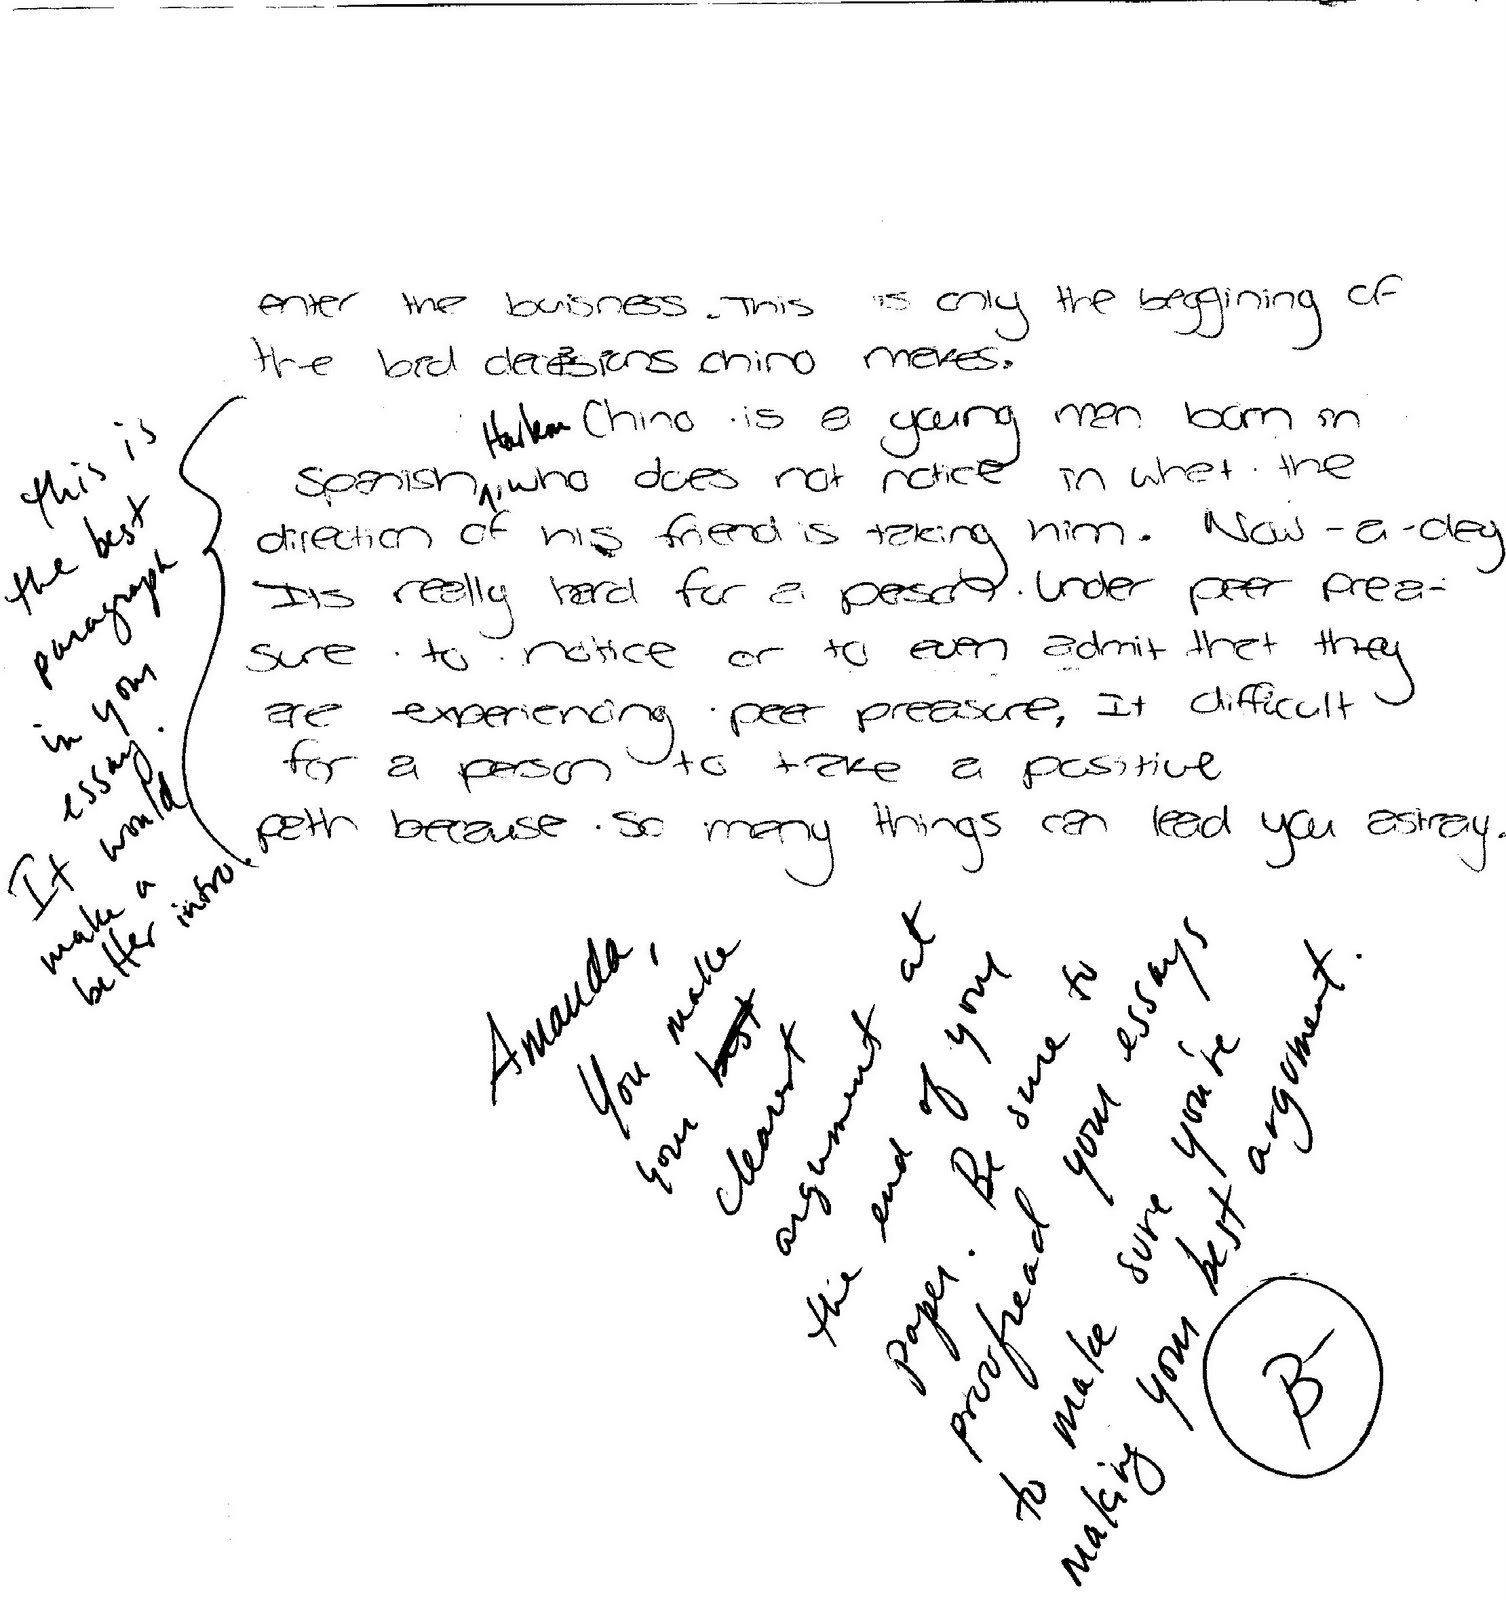 enter the buisness. This is only the beggining of
the bad decisions chino makes.
Harlem
Chino is a young man born in
Spanish, who does not notice in what the
direction of his friend is taking him. Now-a-day
Its really hard for a person under peer prea-
sure to notice or to even admit that they
are experiencing peer preasure, It difficult
for a person to take a positive
path because so many things can lead you astray.
this is
the best
paragraph
in your
essay.
It would
make a
better intro.
Amanda,
You make
your best
clearest
argument at
the end of your
paper. Be sure to
proofread your essays
to make sure you're
making your best argument.
B-